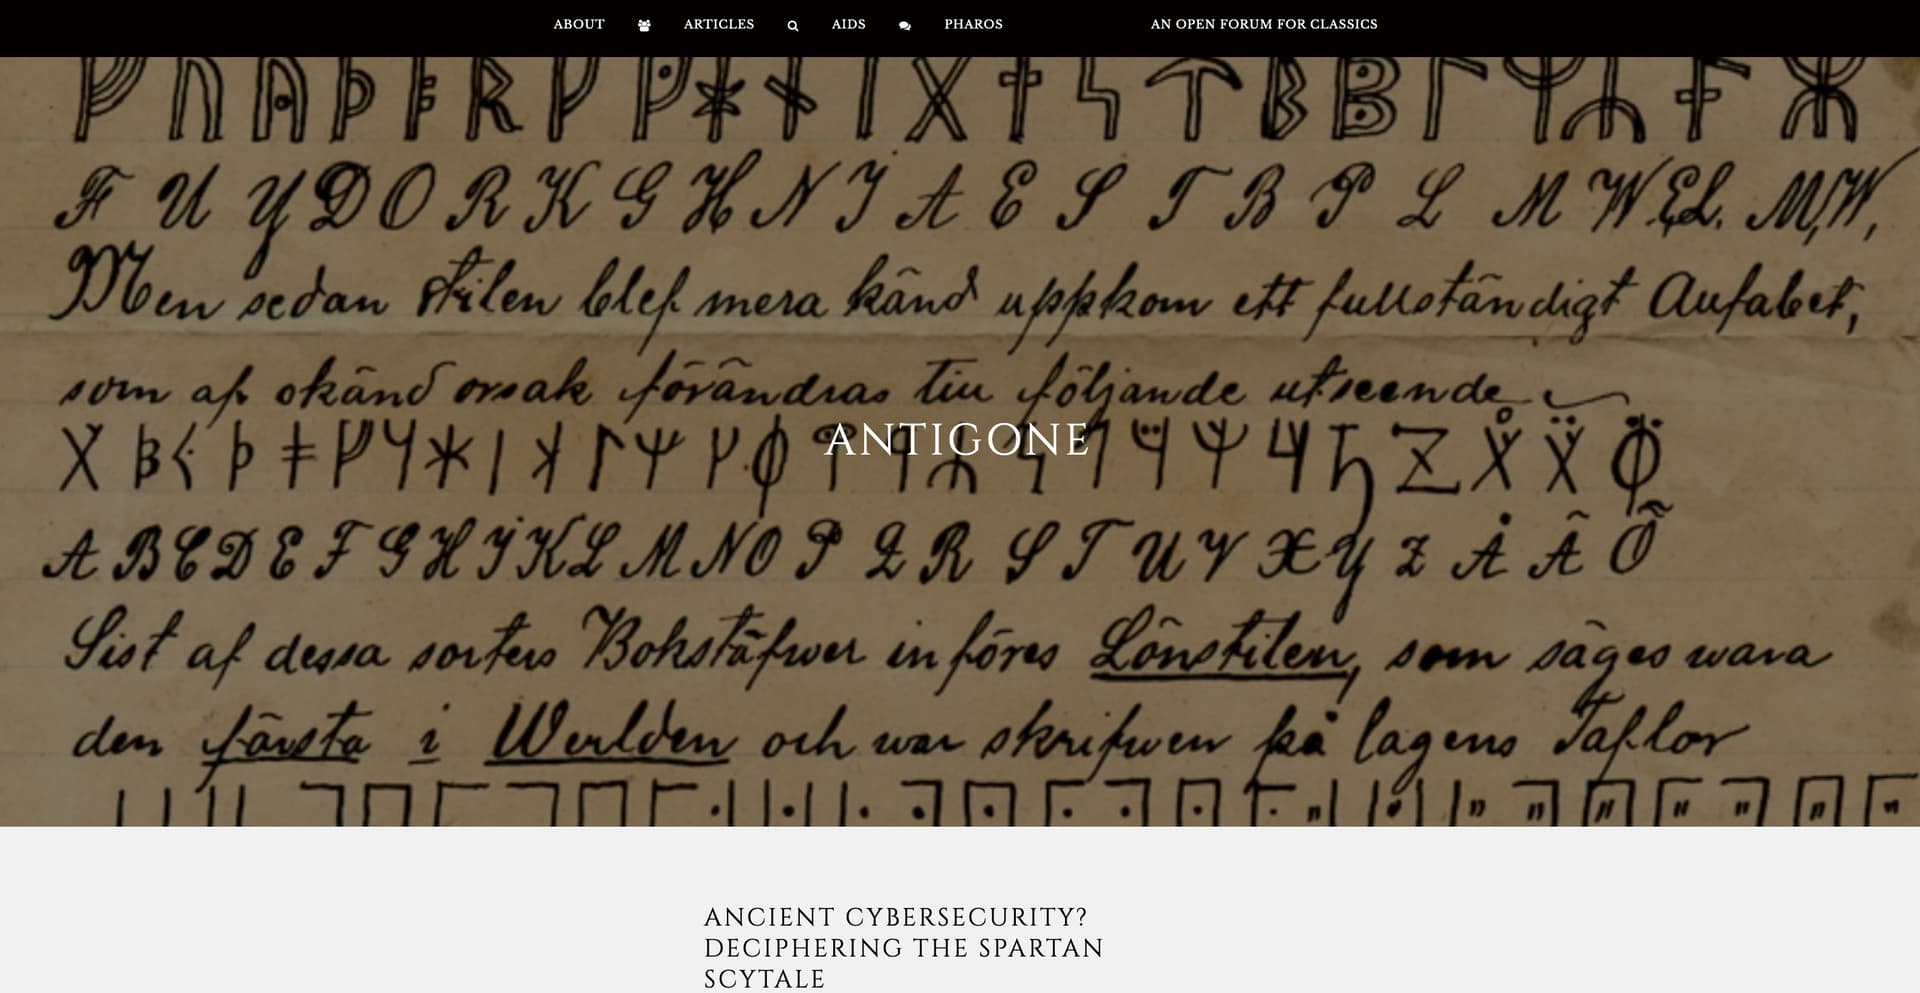 ABOUT ARTICLES AIDS PHAROS AN OPEN FORUM FOR CLASSICS
F U Y D O R K G H N I A E S T B P L M W, EL. M, W,
Men sedan stilen blef mera känd uppkom ett fullständigt Aufabet,
som af okänd orsak förändras till följande utseende
ANTIGONE
A B C D E F G H I K L M N O P Q R S T U V X Y Z Å Ä Ö
Sist af dessa sorters Bokstäfwer införes Lönstilen, som säges wara
den första i Werlden och war skrifwen på lagens Taflor
ANCIENT CYBERSECURITY?
DECIPHERING THE SPARTAN
SCYTALE